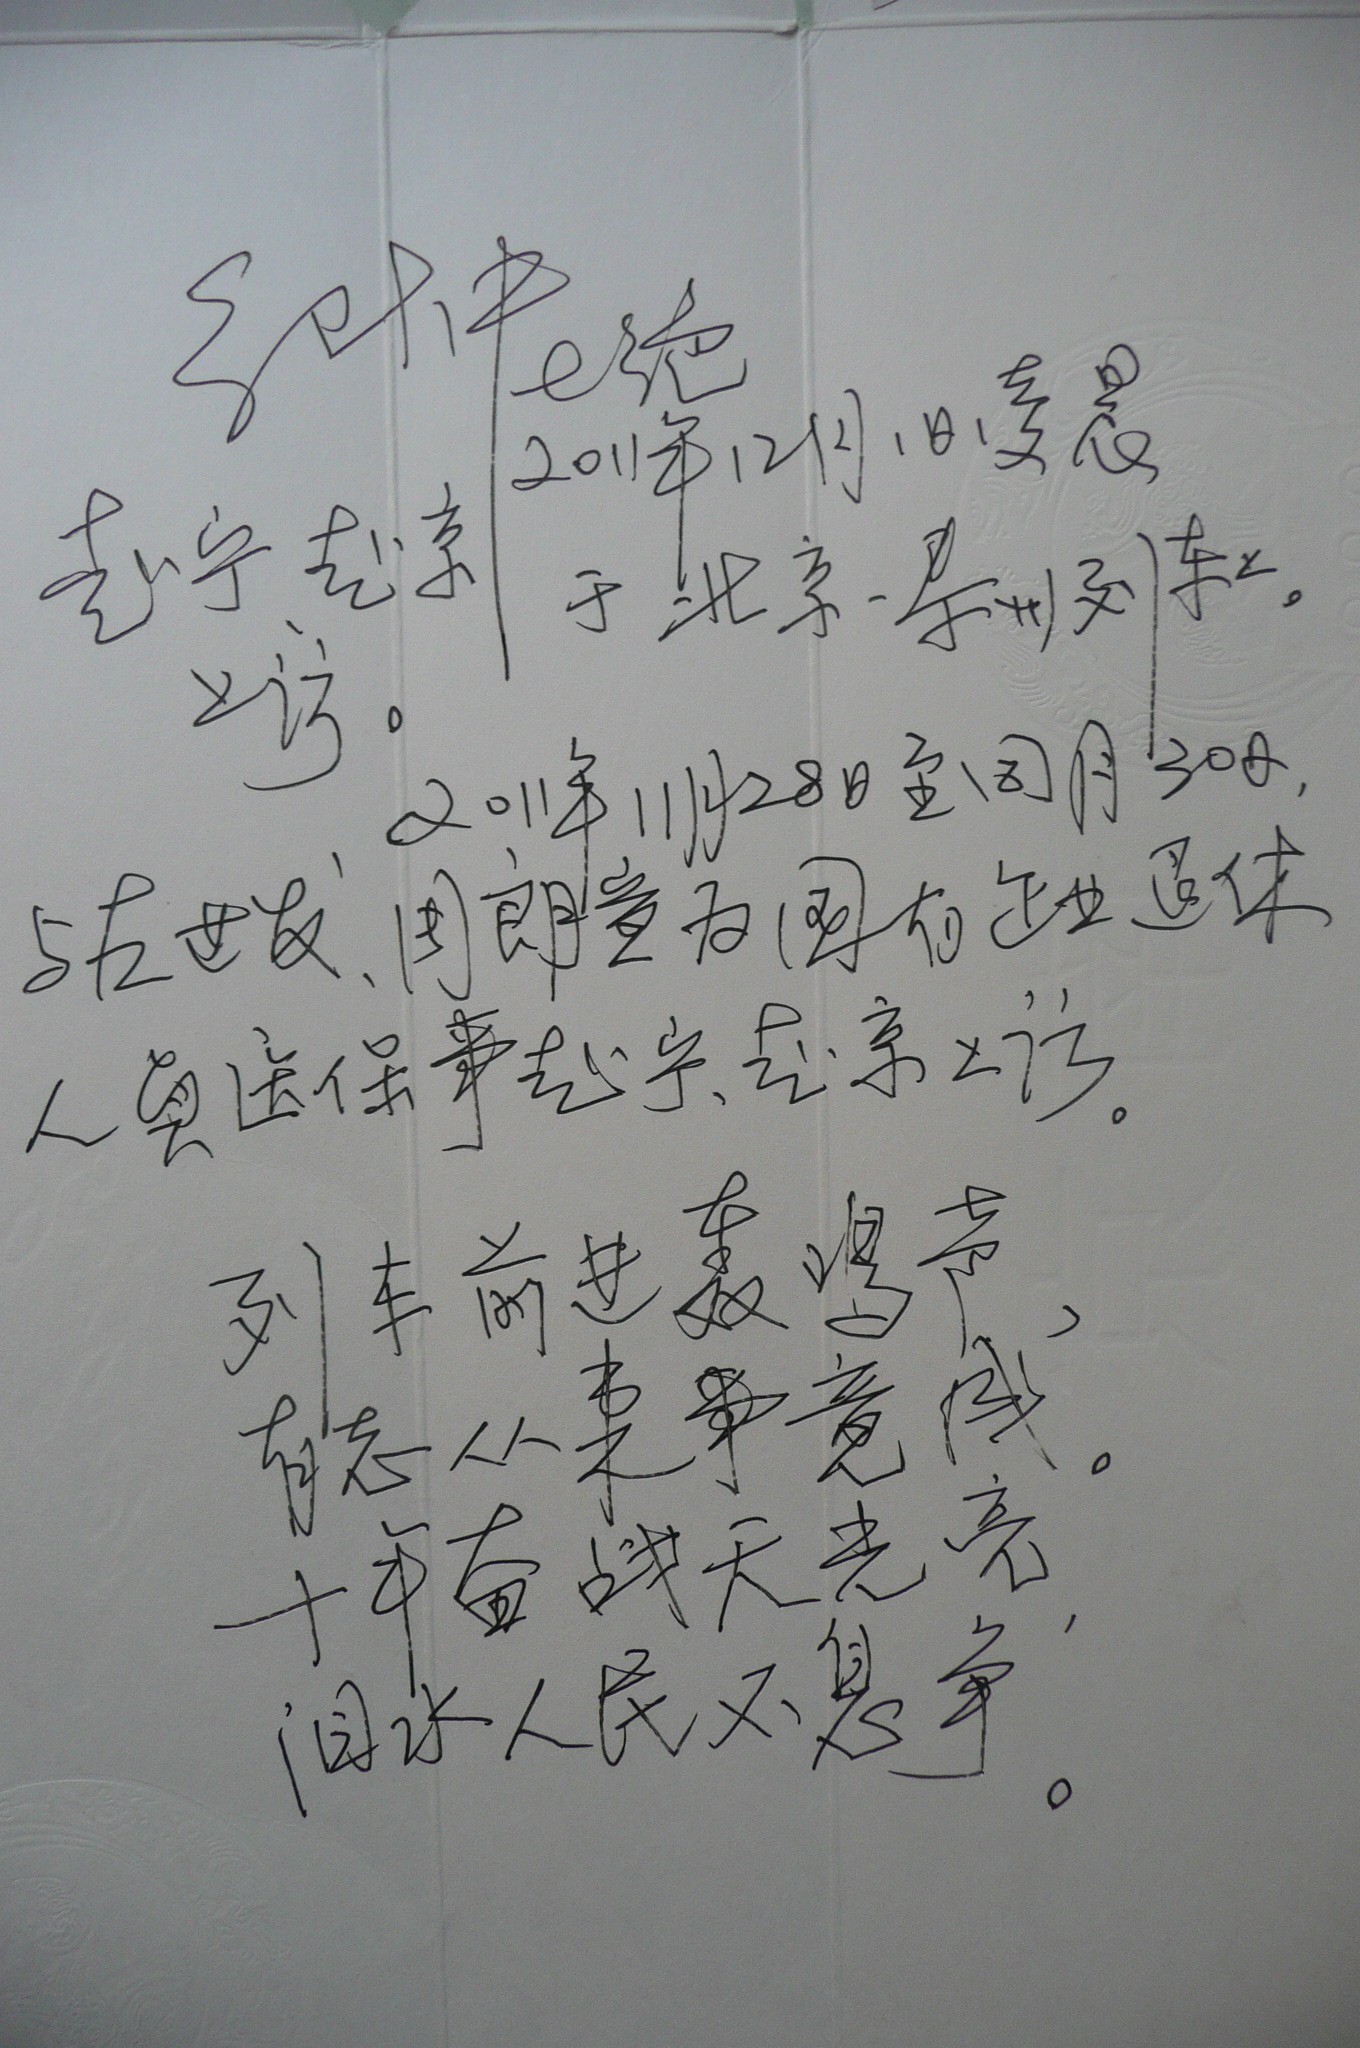 七绝
赴宁、赴京
上访。
2011年12月1日凌晨
于北京—泉州列车上。
2011年11月28日至同月30日，
与左世友、周朗壹为国有企业退休
人员医保事赴宁、赴京上访。
列车前进轰鸣声，
有志从来事竟成。
十年奋战天光亮，
泪水人民不息争。